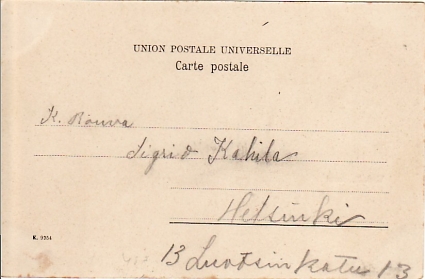 UNION POSTALE UNIVERSELLE
Carte postale
K. Rouva
Sigrid Kahila
Helsinki
K. 9354
13 Luotsinkatu 13